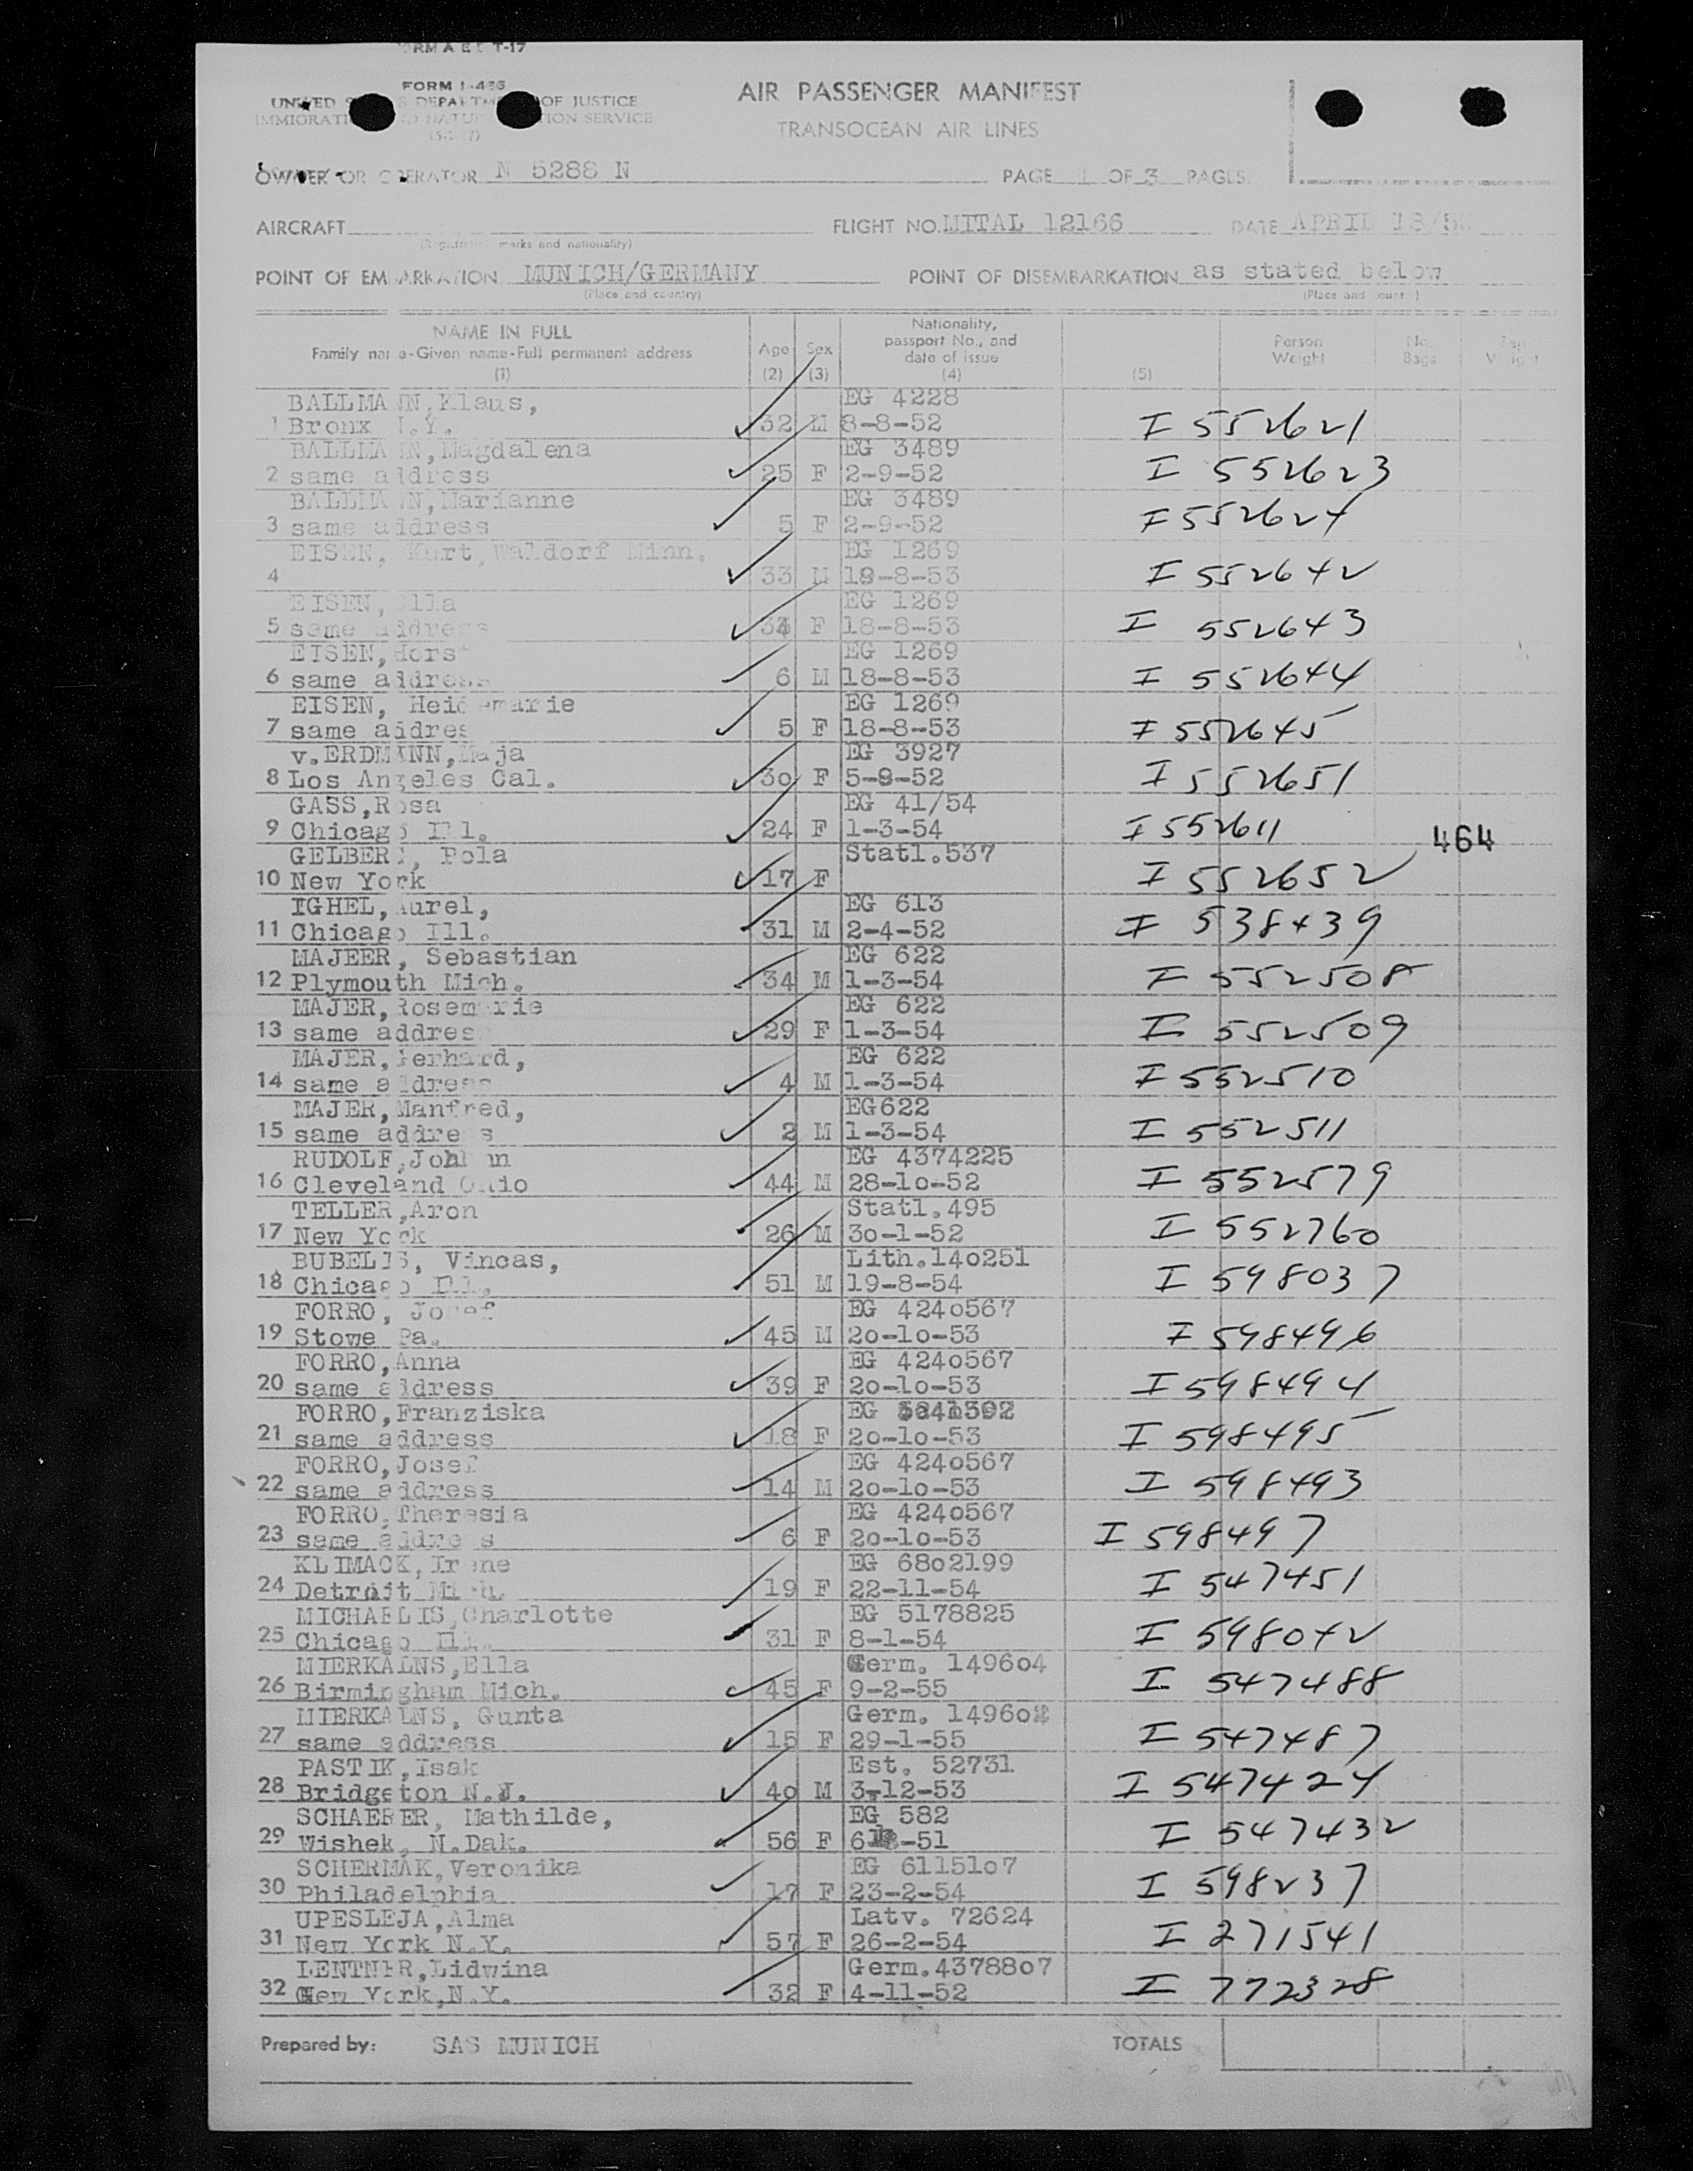 FORM I-466
UNITED STATES DEPARTMENT OF JUSTICE
IMMIGRATION AND NATURALIZATION SERVICE
AIR PASSENGER MANIFEST
TRANSOCEAN AIR LINES
OWNER OR OPERATOR N 5288 N PAGE 1 OF 3 PAGES
AIRCRAFT FLIGHT NO. MITAL 12166 DATE APRIL 18/5
(Registration marks and nationality)
POINT OF EMBARKATION MUNICH/GERMANY POINT OF DISEMBARKATION as stated below
(Place and country) (Place and country)
NAME IN FULL
Family name-Given name-Full permanent address
(1)
Age
(2)
Sex
(3)
Nationality,
passport No., and
date of issue
(4)
(5)
Person
Weight
No.
Bags
Bag
Weight
BALLMANN, Klaus, EG 4228
1 Bronx N.Y. 32 M 8-8-52 I 552621
BALLMANN, Magdalena EG 3489
2 same address 25 F 2-9-52 I 552623
BALLMANN, Marianne EG 3489
3 same address 5 F 2-9-52 I 552624
EISEN, Kurt, Waldorf Minn. EG 1269
4 33 M 18-8-53 I 552642
EISEN, Ella EG 1269
5 same address 34 F 18-8-53 I 552643
EISEN, Horst EG 1269
6 same address 6 M 18-8-53 I 552644
EISEN, Heidemarie EG 1269
7 same address 5 F 18-8-53 I 552645
v.ERDMANN, Maja EG 3927
8 Los Angeles Cal. 30 F 5-8-52 I 552651
GASS, Rosa EG 41/54
9 Chicago Ill. 24 F 1-3-54 I 552611
464
GELBERT, Pola Statl.537
10 New York 17 F I 552652
IGHEL, Aurel, EG 613
11 Chicago Ill. 31 M 2-4-52 I 538439
MAJEER, Sebastian EG 622
12 Plymouth Mich. 34 M 1-3-54 I 552508
MAJER, Rosemarie EG 622
13 same address 29 F 1-3-54 I 552509
MAJER, Gerhard, EG 622
14 same address 4 M 1-3-54 I 552510
MAJER, Manfred, EG622
15 same address 2 M 1-3-54 I 552511
RUDOLF, Johann EG 4374225
16 Cleveland Ohio 44 M 28-10-52 I 552579
TELLER, Aron Statl.495
17 New York 26 M 30-1-52 I 552760
BUBELIS, Vincas, Lith.140251
18 Chicago Ill. 51 M 19-8-54 I 598037
FORRO, Josef EG 4240567
19 Stowe Pa. 45 M 20-10-53 I 598496
FORRO, Anna EG 4240567
20 same address 39 F 20-10-53 I 598494
FORRO, Franziska EG
21 same address 18 F 20-10-53 I 598495
FORRO, Josef EG 4240567
22 same address 14 M 20-10-53 I 598493
FORRO, Theresia EG 4240567
23 same address 6 F 20-10-53 I 598497
KLIMACK, Irene EG 6802199
24 Detroit Mich. 19 F 22-11-54 I 547451
MICHAELIS, Charlotte EG 5178825
25 Chicago Ill. 31 F 8-1-54 I 598042
MIERKALNS, Ella Germ. 149604
26 Birmingham Mich. 45 F 9-2-55 I 547488
MIERKALNS, Gunta Germ. 149602
27 same address 15 F 29-1-55 I 547487
PASTIK, Isak Est. 52731
28 Bridgeton N.J. 40 M 3-12-53 I 547424
SCHAEBER, Mathilde, EG 582
29 Wishek, N.Dak. 56 F I 547432
SCHERMAK, Veronika EG 6115107
30 Philadelphia 17 F 23-2-54 I 598237
UPESLEJA, Alma Latv. 72624
31 New York N.Y. 57 F 26-2-54 I 271541
LENTNER, Lidwina Germ.4378807
32 New York, N.Y. 32 F 4-11-52 I 772328
Prepared by: SAS MUNICH TOTALS